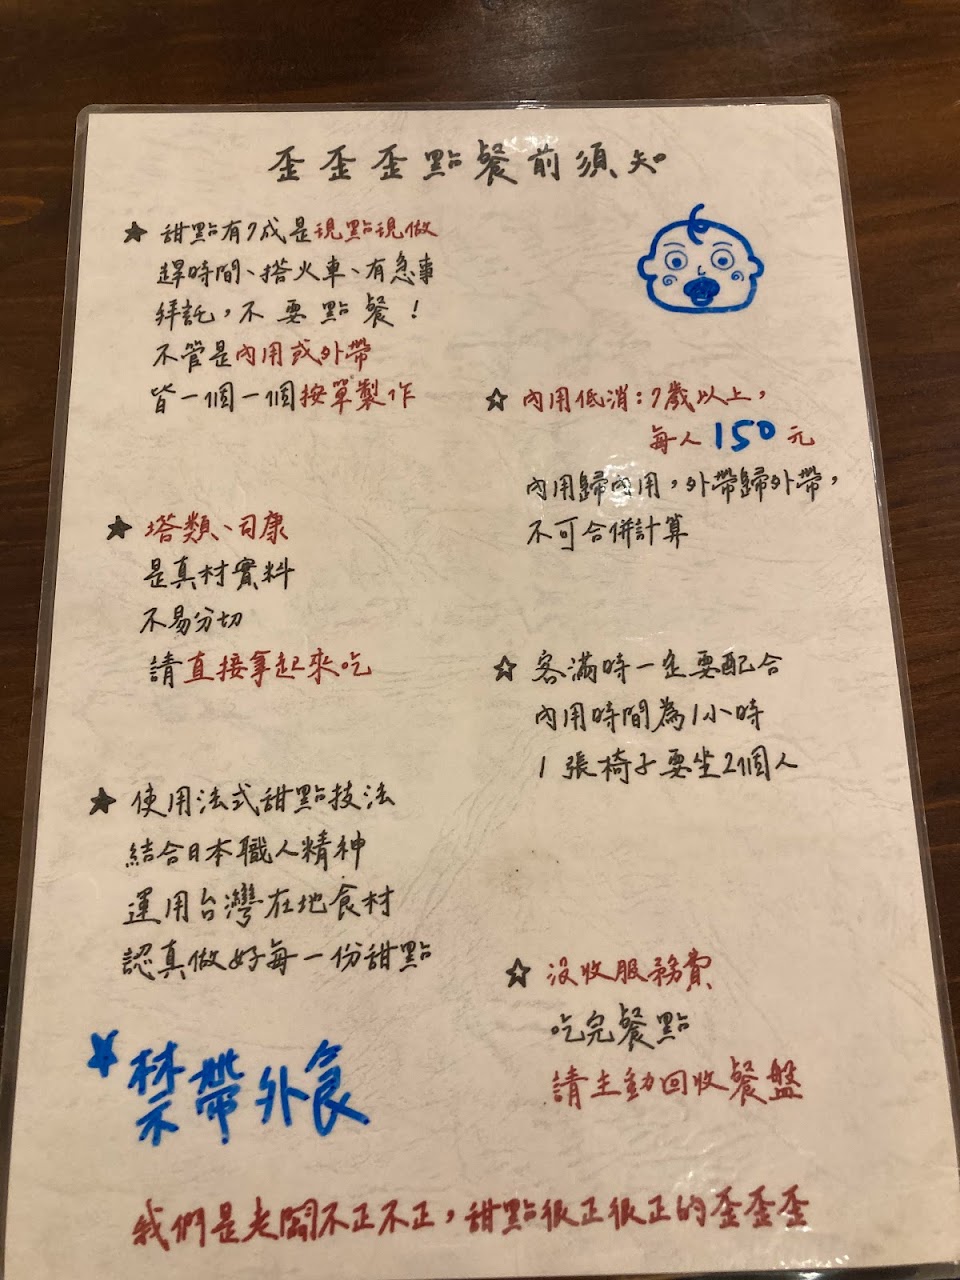 歪歪歪點餐前須知
★ 甜點有7成是現點現做
趕時間、搭火車、有急事
拜託，不要點餐！
不管是內用或外帶
皆一個一個按單製作
★ 塔類、司康
是真材實料
不易分切
請直接拿起來吃
★ 使用法式甜點技法
結合日本職人精神
運用台灣在地食材
認真做好每一份甜點
★ 禁帶外食
☆ 內用低消：7歲以上，
每人150元
內用歸內用，外帶歸外帶，
不可合併計算
☆ 客滿時一定要配合
內用時間為1小時
1張椅子要坐2個人
☆ 沒收服務費
吃完餐點
請主動回收餐盤
我們是老闆不正不正，甜點很正很正的歪歪歪